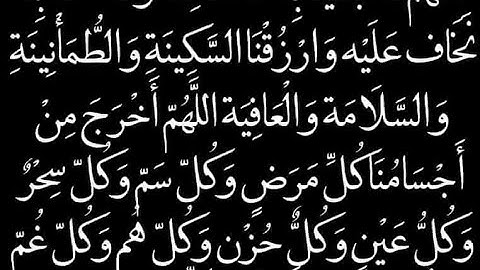 نَخَاف عَلَيْه وَارْزُقْنَا السَّكِينَةِ وَالطُّمَأْنِينَةِ
وَالسَّلَامة وَالْعَافِيَة اللَّهُمّ أَخْرَجَ مِنْ
أَجْسَامُنَا كُلِّ مَرَضٍ وَكُلّ سَمّ وَكُلّ سِحْرٌ
وَكُلُّ عَيْنٍ وَكُلٌّ حُزْن وَكُلّ هُم وَكُلّ غُمّ